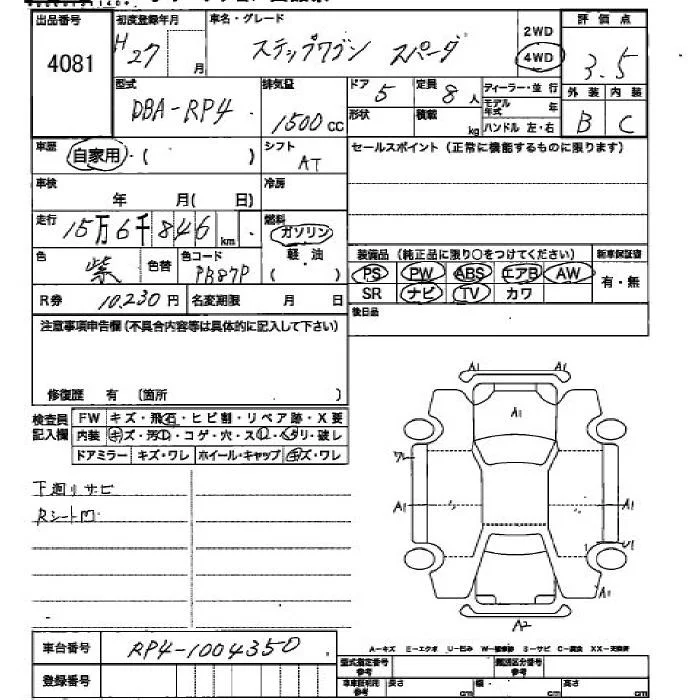 出品番号 初度登録年月 車名・グレード 2WD 評価点
4081 H27 月 ステップワゴン スパーダ 4WD 3.5
型式 排気量 ドア 定員 ディーラー・並行 外装 内装
DBA-RP4 1500cc 5 8人 モデル年式
形状 積載 kg ハンドル 左・右 B C
車歴 自家用・( ) シフト AT セールスポイント(正常に機能するものに限ります)
車検 年 月( 日) 冷房
走行 15万6千846km 燃料 ガソリン
軽油
( )
色 紫 色替 色コード PB87P
装備品(純正品に限り○をつけてください) 新車保証書
PS PW ABS エアB AW 有・無
SR ナビ TV カワ
R券 10,230円 名変期限 月 日
後日品
注意事項申告欄(不具合内容等は具体的に記入して下さい)
修復歴 有 (箇所 )
検査員記入欄 FW キズ・飛石・ヒビ割・リペア跡・X要
内装 キズ・汚・コゲ・穴・ス・リ・破レ
ドアミラー キズ・ワレ ホイール・キャップ キズ・ワレ
下廻りサビ
Rシート凹
A1 A1
A1
ワレ
A1 A1
U1
A2
車台番号 RP4-1004350
登録番号
A-キズ E-エクボ U-凹み W-補修跡 S-サビ C-腐食 XX-交換済
型式指定番号 参考 類別区分番号 参考
車車証明用 参考 長さ cm 幅 cm 高さ cm